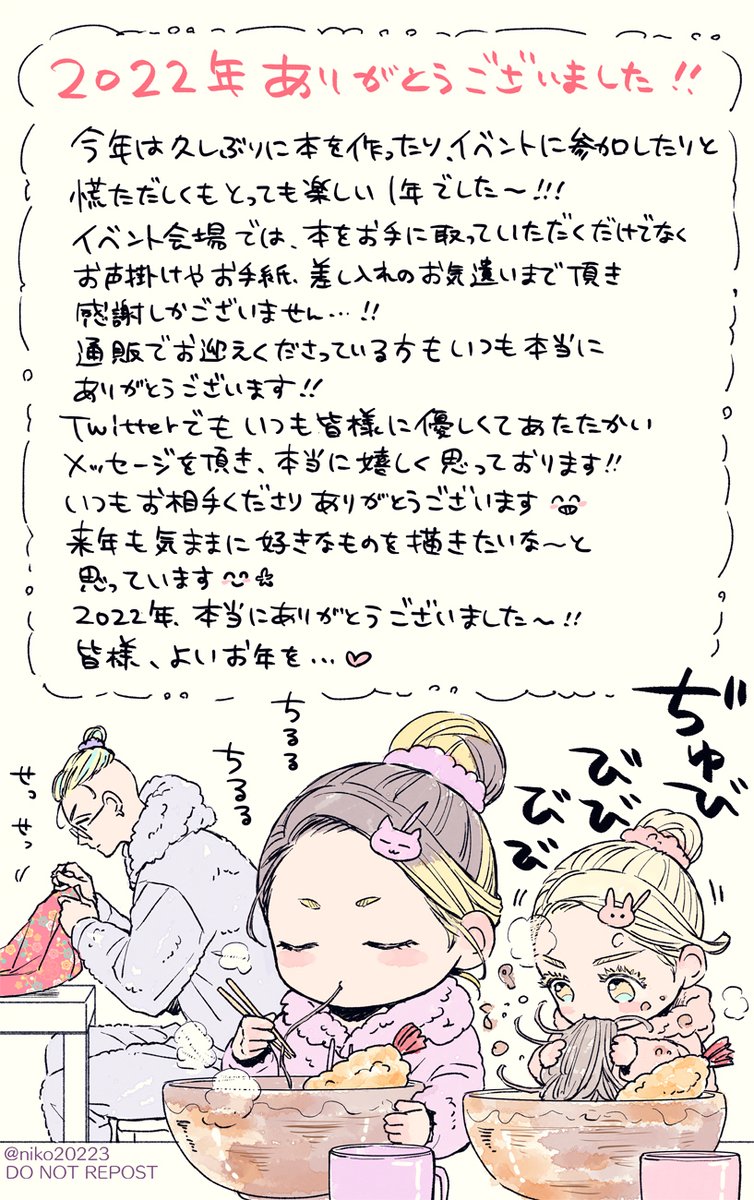 2022年ありがとうございました!!
今年は久しぶりに本を作ったり、イベントに参加したりと
慌ただしくもとっても楽しい1年でした〜!!!
イベント会場では、本をお手に取っていただくだけでなく
お声掛けやお手紙、差し入れのお気遣いまで頂き
感謝しかございません…!!
通販でお迎えくださっている方もいつも本当に
ありがとうございます!!
Twitterでもいつも皆様に優しくてあたたかい
メッセージを頂き、本当に嬉しく思っております!!
いつもお相手くださりありがとうございます
来年も気ままに好きなものを描きたいな〜と
思っています
2022年、本当にありがとうございました〜!!
皆様、よいお年を…♡
ぢゅび
びび
びび
ちるる
ちるる
せっ
せっ
@niko20223
DO NOT REPOST